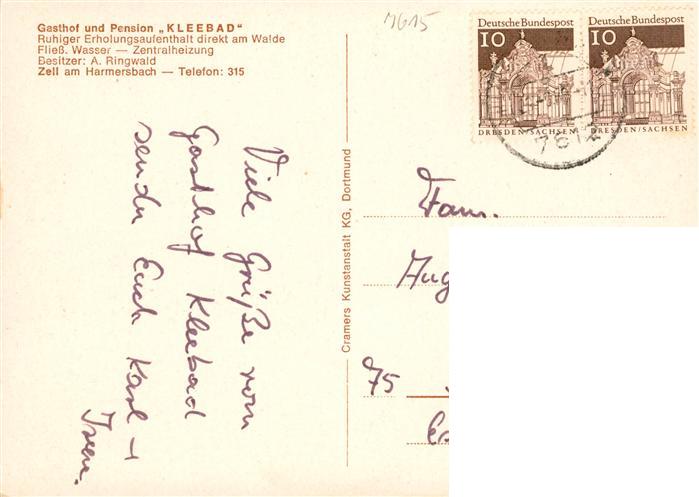 Gasthof und Pension „KLEEBAD"
Ruhiger Erholungsaufenthalt direkt am Walde
Fließ. Wasser — Zentralheizung
Besitzer: A. Ringwald
Zell am Harmersbach — Telefon: 315
7615
Deutsche Bundespost
10
DRESDEN/SACHSEN
Deutsche Bundespost
10
DRESDEN/SACHSEN
Viele Grüße vom
Gasthof Kleebad
senden Euch Karl +
Cramers Kunstanstalt KG, Dortmund
Fam.
Aug
75